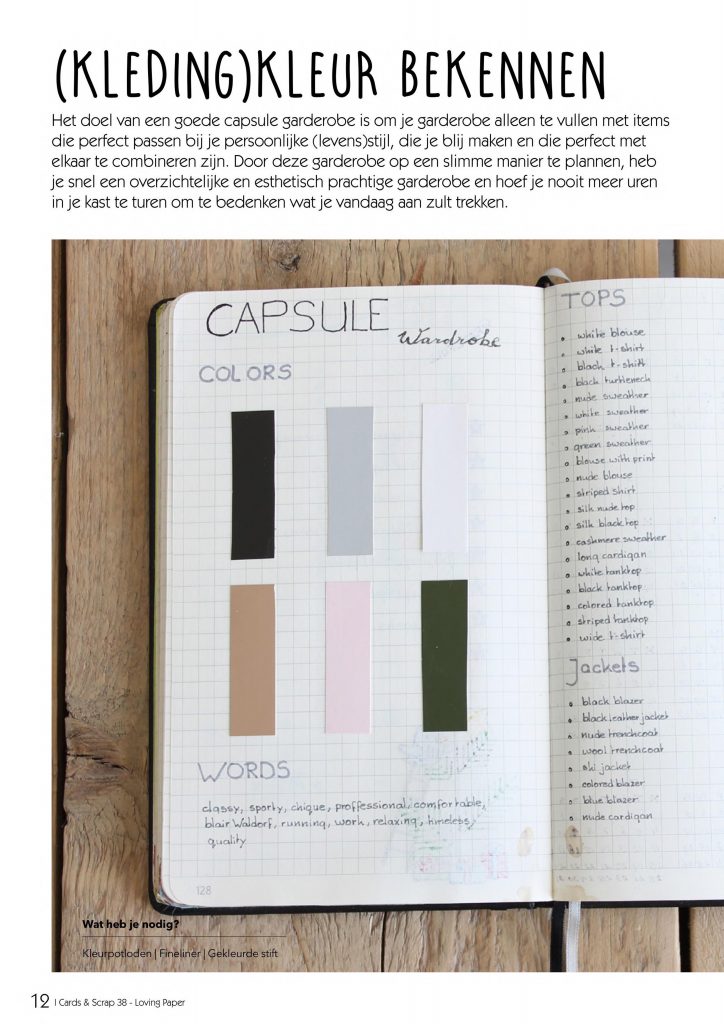 (KLEDING)KLEUR BEKENNEN
Het doel van een goede capsule garderobe is om je garderobe alleen te vullen met items
die perfect passen bij je persoonlijke (levens)stijl, die je blij maken en die perfect met
elkaar te combineren zijn. Door deze garderobe op een slimme manier te plannen, heb
je snel een overzichtelijke en esthetisch prachtige garderobe en hoef je nooit meer uren
in je kast te turen om te bedenken wat je vandaag aan zult trekken.
CAPSULE
Wardrobe
COLORS
WORDS
classy, sporty, chique, proffessional, comfortable,
blair Waldorf, running, work, relaxing, timeless,
quality
128
TOPS
white blouse
white t-shirt
black t-shift
black turtleneck
nude sweather
white sweather
pink sweather
green sweather
blouse with print
nude blouse
striped shirt
silk nude top
silk black top
cashmere sweather
long cardigan
white tanktop
black tanktop
colored tanktop
striped tanktop
wide t-shirt
Jackets
black blazer
black leather jacket
nude trenchcoat
wool trenchcoat
ski jacket
colored blazer
blue blazer
nude cardigan
Wat heb je nodig?
Kleurpotloden | Fineliner | Gekleurde stift
12 | Cards & Scrap 38 - Loving Paper